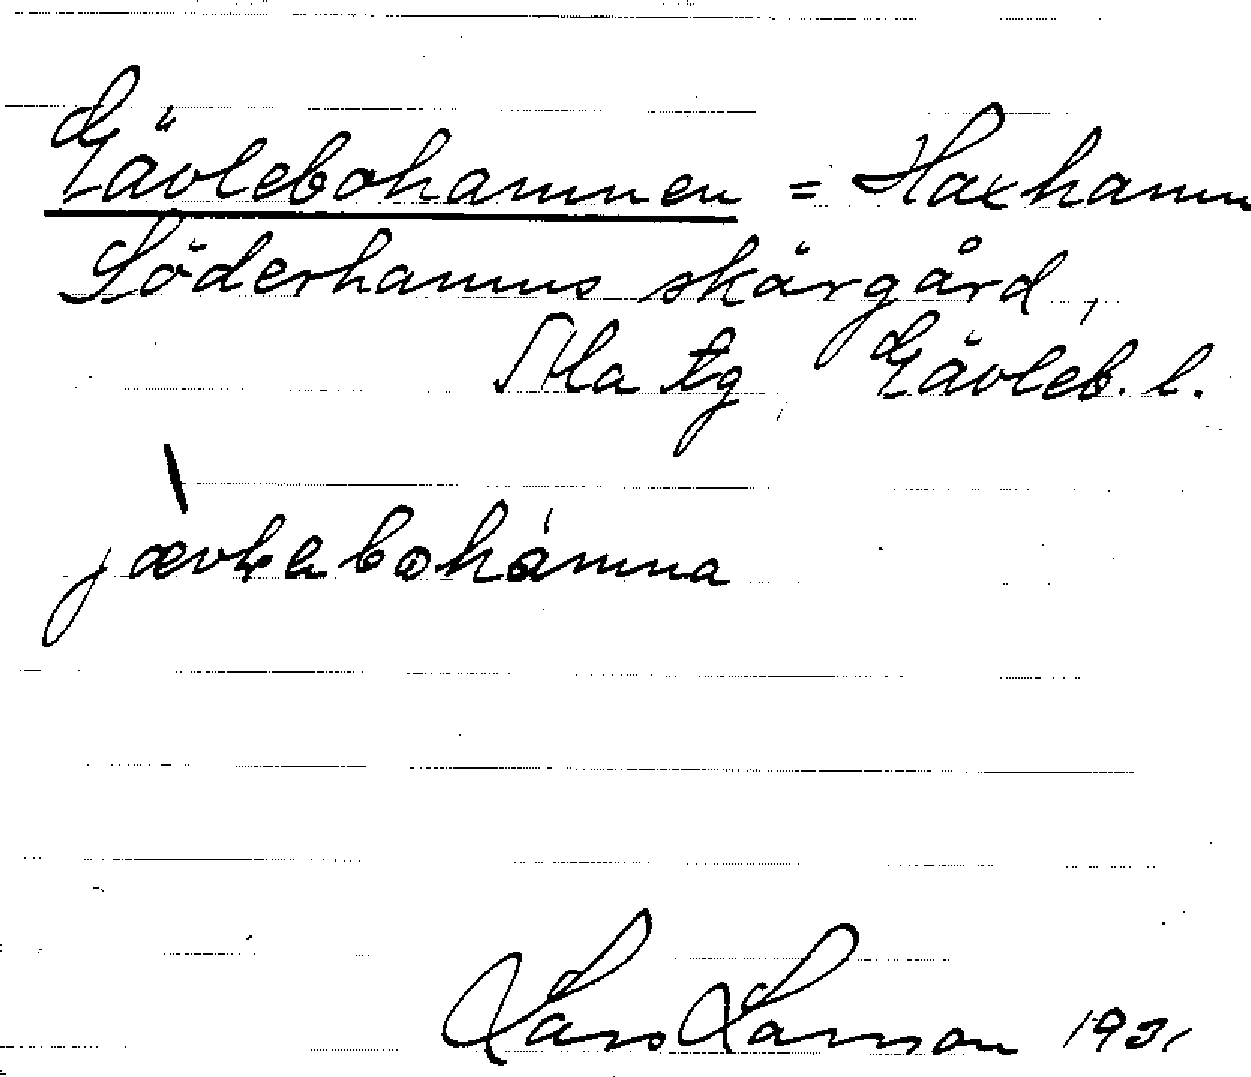 Gävlebohamnen = Haxhamn
Söderhamns skärgård,
Ala tg, Gävleb. l.
jævlebohámna
Lars Larsson 193